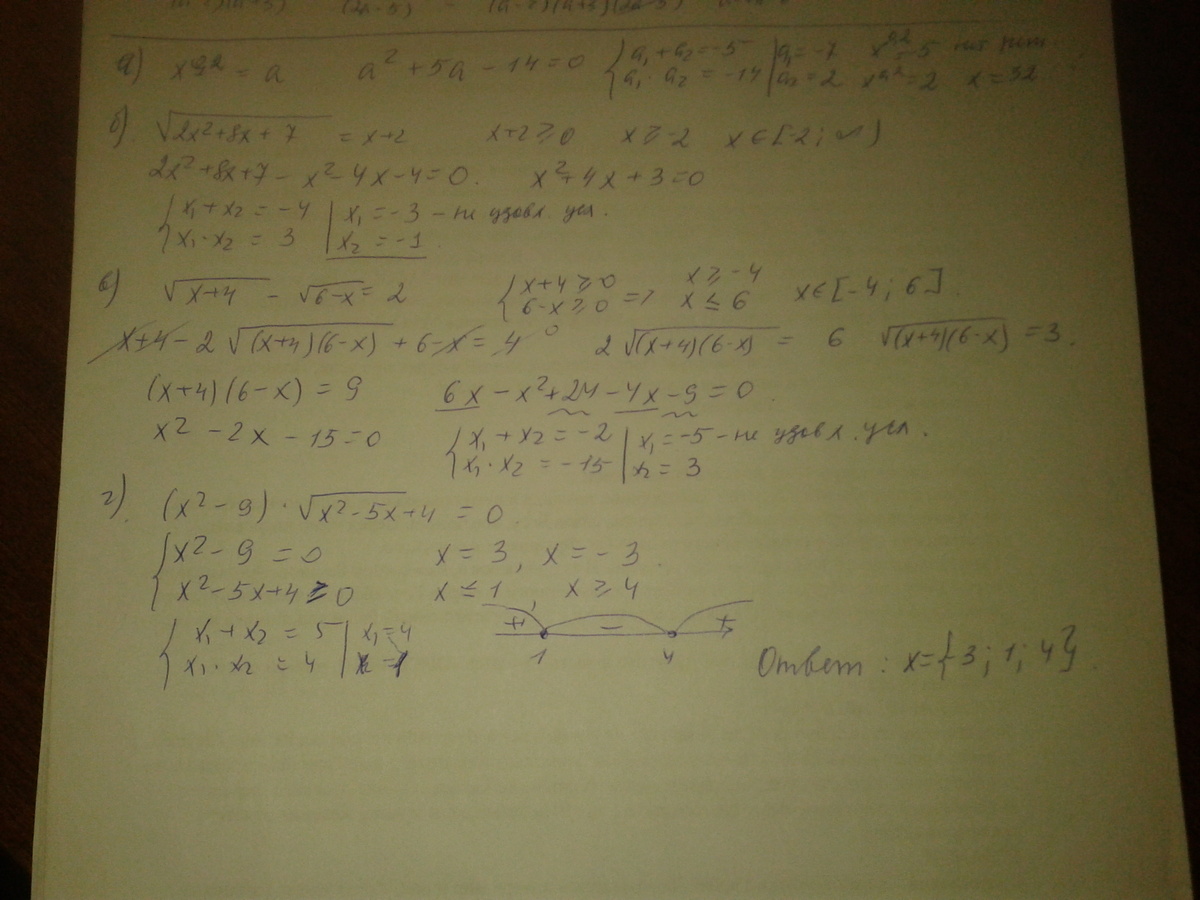 а) x^0,2 = a   a² + 5a − 14 = 0   { a₁ + a₂ = −5   a₁ · a₂ = −14 | a₁ = −7   a₂ = 2   x^0,2 = 2   x = 32
б) √(2x² + 8x + 7) = x + 2   x + 2 ≥ 0   x ≥ −2   x ∈ [−2; ∞)
2x² + 8x + 7 − x² − 4x − 4 = 0.   x² + 4x + 3 = 0
{ x₁ + x₂ = −4 | x₁ = −3 – не удовл. усл.
x₁ · x₂ = 3 | x₂ = −1
в) √(x+4) − √(6−x) = 2   { x + 4 ≥ 0   6 − x ≥ 0 =>   x ≥ −4   x ≤ 6   x ∈ [−4; 6].
x + 4 − 2√((x+4)(6−x)) + 6 − x = 4   0   2√((x+4)(6−x)) = 6   √((x+4)(6−x)) = 3.
(x+4)(6−x) = 9   6x − x² + 24 − 4x − 9 = 0.
x² − 2x − 15 = 0   { x₁ + x₂ = −2 | x₁ = −5 – не удовл. усл.
x₁ · x₂ = −15 | x₂ = 3
г). (x² − 9) · √(x² − 5x + 4) = 0.
{ x² − 9 = 0   x = 3, x = −3.
x² − 5x + 4 ≥ 0   x ≤ 1, x ≥ 4
{ x₁ + x₂ = 5 | x₁ = 4   + − +
x₁ · x₂ = 4 | x = 1   1   4   Ответ: x = {−3; 1; 4}.